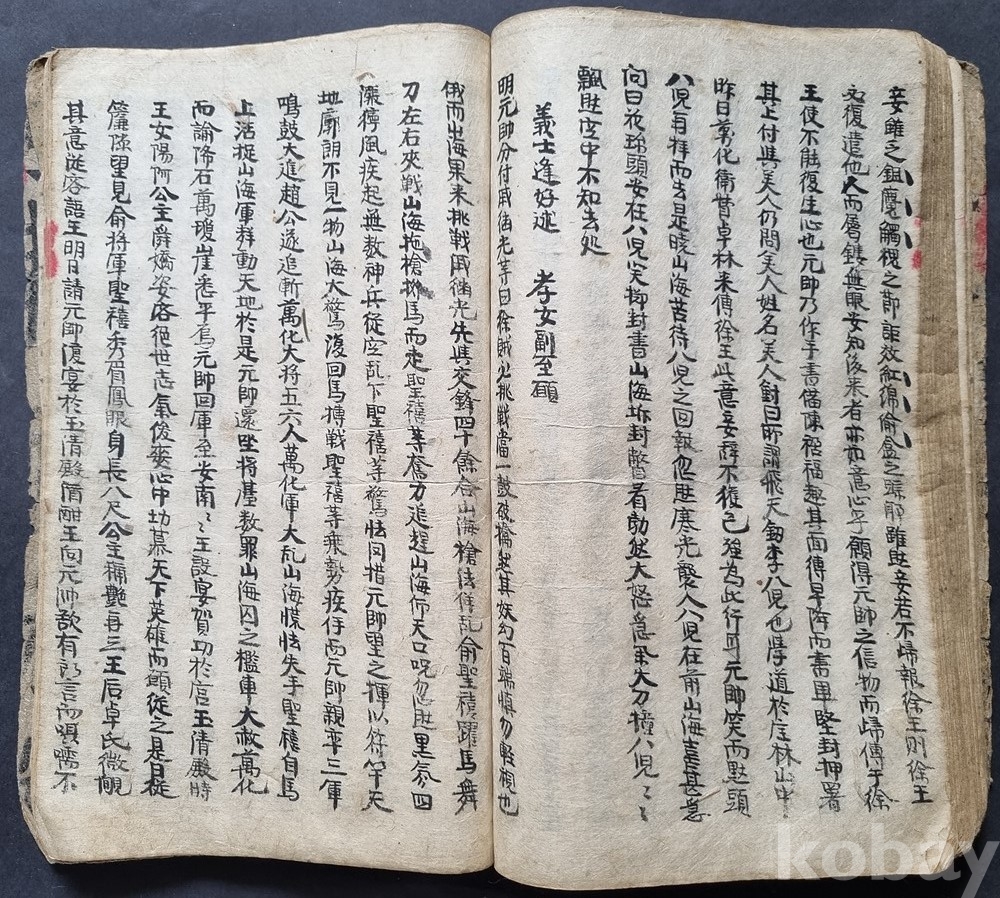 妾雖乏鉏麑觸槐之節詎效紅綃偷盒之跡耶雖然妾若不歸報徐王則徐王
必復遣他人而層鎖無眼安知後來者亦如意心乎願得元帥之信物而歸傳于徐
王使不敢復生心也元帥乃作手書備陳禍福趣其面縛早降而書畢堅封押署
其上付與美人仍問美人姓名美人對曰所謂飛天釰李八児也學道於庄林山中
昨日萬化衛督卓林来傳徐王此意妾辞不獲已強為此行耳元帥笑而點頭
八児再拜而去是時山海苦待八児之回報忽然寒光襲人八児在前山海喜甚急
向曰花珎頭安在八児笑擲封書山海坼封瞥看勃然大怒急拿大刀撞八児〻〻
飄然空中不知去処
義士逢好逑 孝女副至願
明元帥分付戚继光等曰徐賊必挑戦當一鼓破擒然其妖幻百端慎勿輕視也
俄而山海果来挑戦戚继光先與交鋒四十餘合山海槍法侍乱俞聖禧躍馬舞
刀左右夾戦山海拖槍撥馬而走聖禧等奮力追趕山海仰天口呪忽然黒雰四
濛獰風疾起無数神兵從空乱下聖禧等驚怯罔措元帥望之揮以符竿天
地廓朗不見一物山海大驚復回馬搏戦聖禧等乘勢疾仔而元帥親率三軍
鳴鼓大進趙公遂進斬萬化大将五六人萬化軍大乱山海慌怯失手聖禧自馬
上活捉山海軍拜動天地於是元帥還坐将基数罪山海囚之檻車大赦萬化
而諭降石萬瓊崖悉平焉元帥回軍至安南〻王設宴賀功於宮玉清殿時
王女陽阿公主舜嬌姿容絶世志氣俊爽心中切慕天下英雄而願從之是日從
簾隙望見俞将軍聖禧秀眉鳳眼身長八尺公主稱艶再三王后卓氏微覘
其意從容語王明日請元帥復宴於玉清殿酒酣王向元帥欲有所言而嗫嚅不
kobay